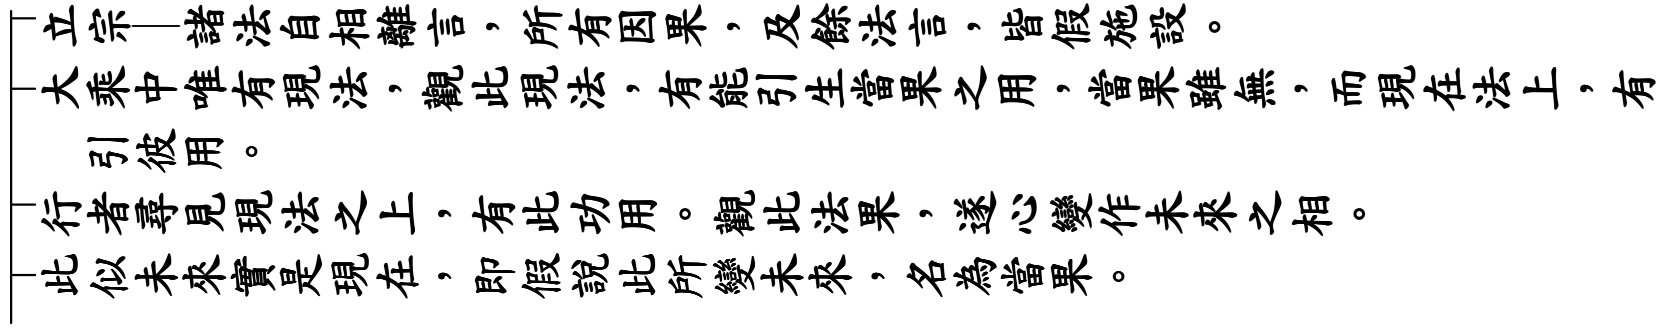 立宗——諸法自相離言，所有因果，及餘法言，皆假施設。
大乘中唯有現法，觀此現法，有能引生當果之用，當果雖無，而現在法上，有
引彼用。
行者尋見現法之上，有此功用。觀此法果，遂心變作未來之相。
此似未來實是現在，即假說此所變未來，名為當果。